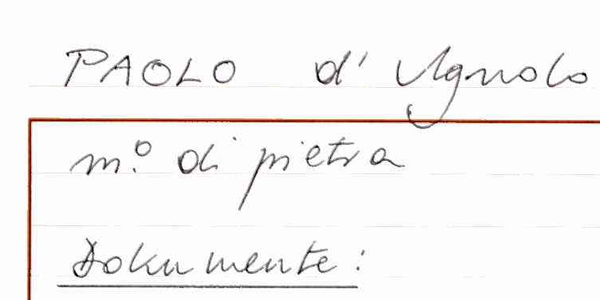 PAOLO d' Ugnolo
m.o di pietra
Dokumente: